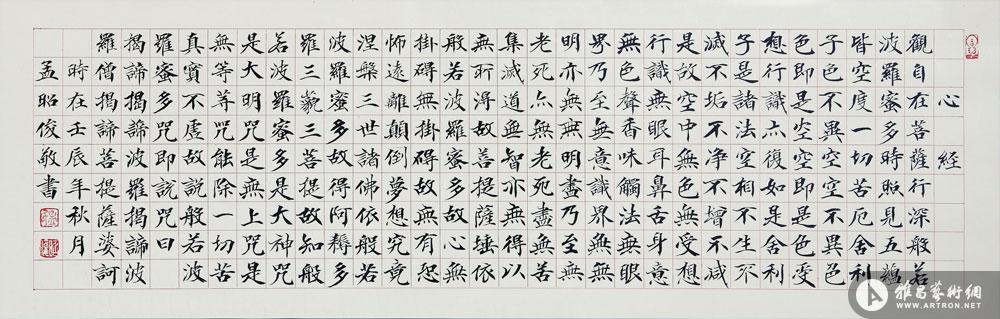 心經
觀自在菩薩行深般若
波羅蜜多時照見五蘊
皆空度一切苦厄舍利
子色不異空空不異色
色即是空空即是色受
想行識亦復如是舍利
子是諸法空相不生不
滅不垢不淨不增不減
是故空中無色無受想
行識無眼耳鼻舌身意
無色聲香味觸法無眼
界乃至無意識界無無
明亦無無明盡乃至無
老死亦無老死盡無苦
集滅道無智亦無得以
無所得故菩提薩埵依
般若波羅蜜多故心無
掛碍無掛碍故無有恐
怖遠離顛倒夢想究竟
涅槃三世諸佛依般若
波羅蜜多故得阿耨多
羅三藐三菩提故知般
若波羅蜜多是大神咒
是大明咒是無上咒是
無等等咒能除一切苦
真實不虛故說般若波
羅蜜多咒即說咒曰
揭諦揭諦波羅揭諦波
羅僧揭諦菩提薩婆訶
時在壬辰年秋月
孟昭俊敬書
雅昌藝術網
WWW.ARTRON.NET